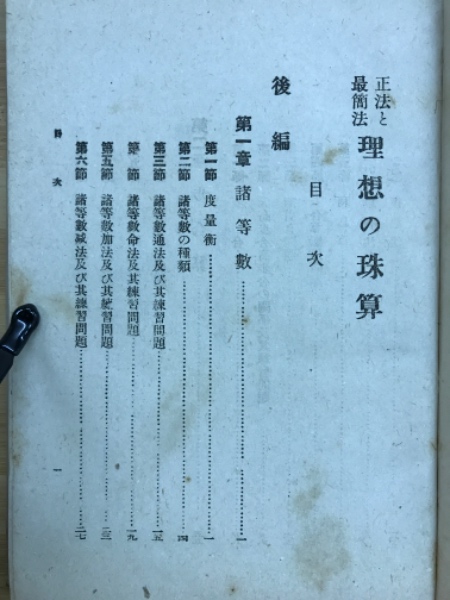 正法と
最簡法
理想の珠算
目次
後編
第一章 諸等數……一
第一節 度量衡……一
第二節 諸等數の種類……四
第三節 諸等數通法及び其練習問題……一五
第 節 諸等數命法及其練習問題……一九
第五節 諸等數加法及び其練習問題……二三
第六節 諸等數減法及び其練習問題……二七
目次
一